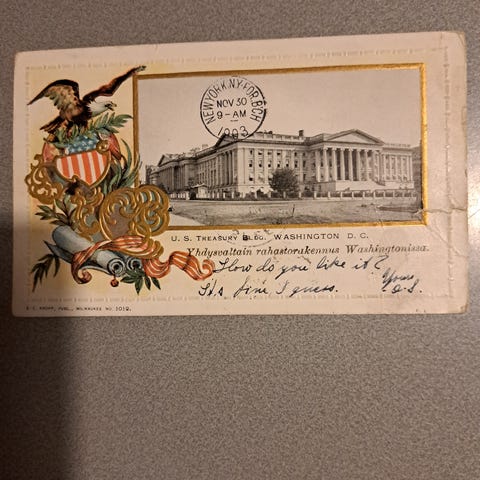 NEW YORK, N.Y. FOR. BCH
NOV 30
9-AM
1903
U. S. TREASURY BLDG. WASHINGTON D. C.
Yhdysvaltain rahastorakennus Washingtonissa.
How do you like it?
fine I guess.
Yours,
E. C. KROPP, PUBL., MILWAUKEE NO. 1012.